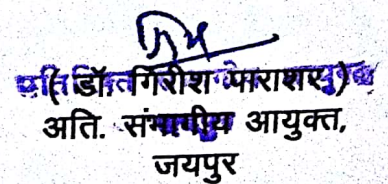 ( डॉ. गिरीश पाराशर )
अति. संभागीय आयुक्त,
जयपुर